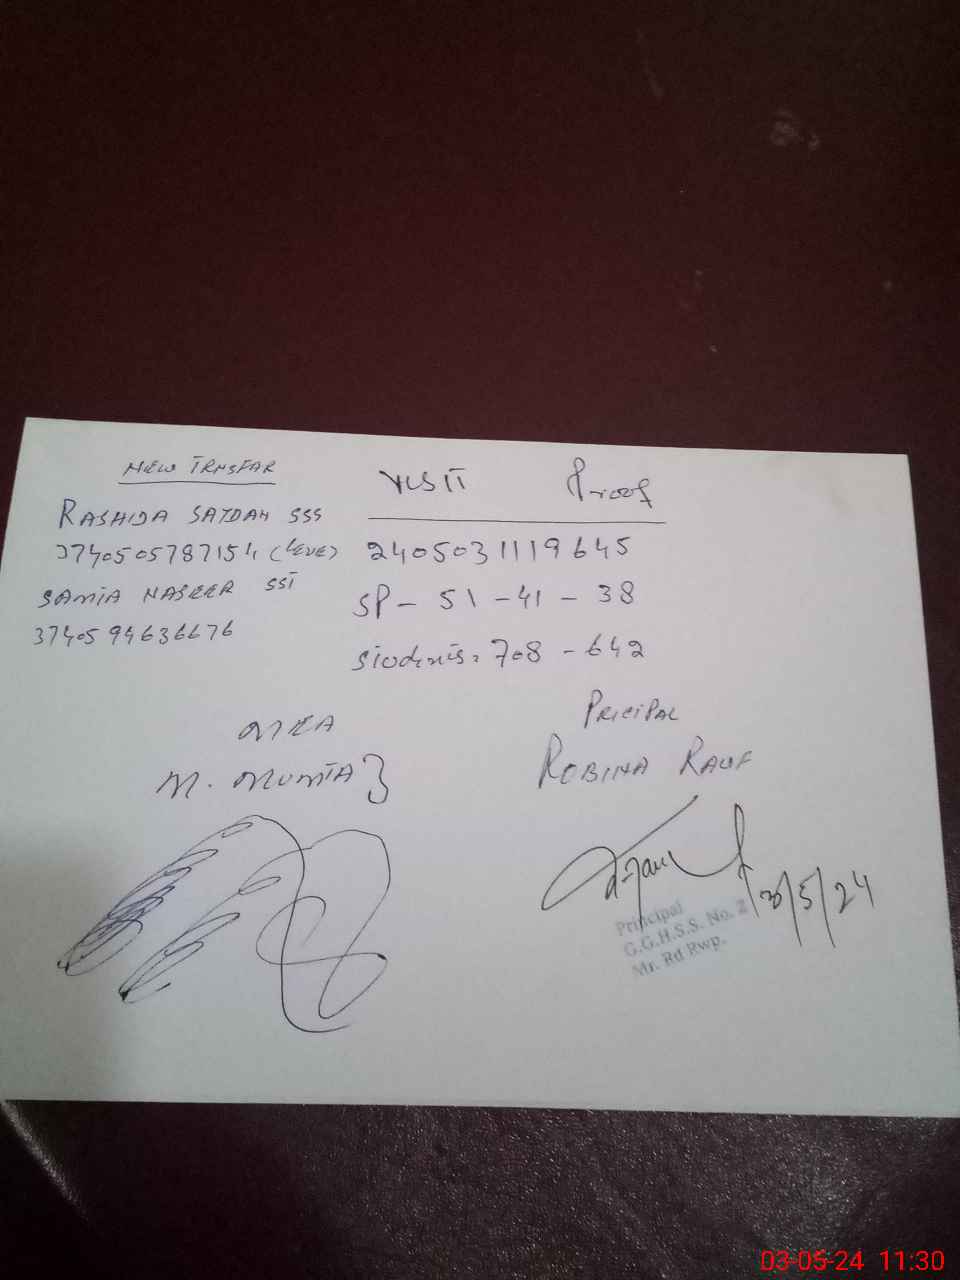 NEW TRNSFAR
RASHIDA SAJDAH SSS
3740505787154 (LEVE)
SAMIA NASEER SST
3740594636676
VISIT Proof
2405031119645
SP - 51 - 41 - 38
Siudenis. 708 - 642
MEA
M. MUMTAZ
PRICIPAL
ROBINA RAUF
3/5/24
Principal
G.G.H.S.S. No. 2
Mr. Rd Rwp.
03-05-24 11:30